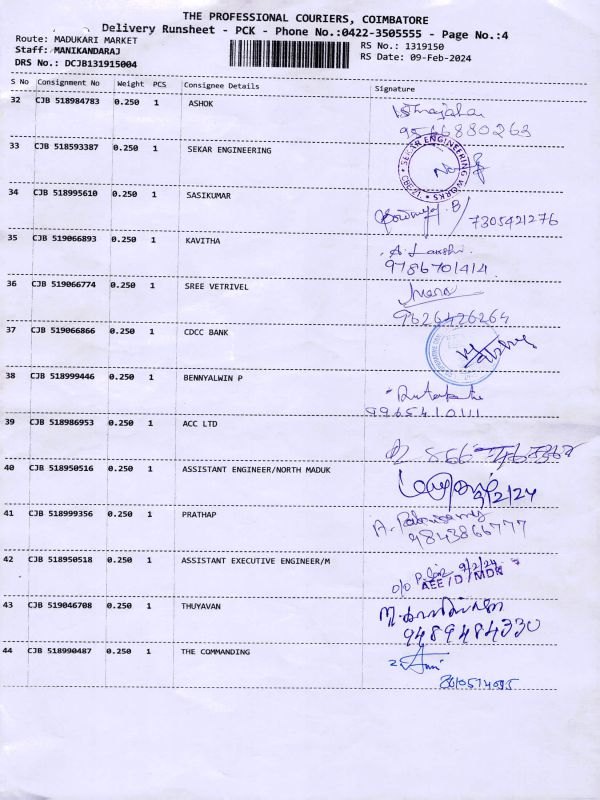 THE PROFESSIONAL COURIERS, COIMBATORE
Delivery Runsheet - PCK - Phone No.:0422-3505555 - Page No.:4
Route: MADUKARI MARKET
RS No.: 1319150
Staff: MANIKANDARAJ
RS Date: 09-Feb-2024
DRS No.: DCJB131915004
S No Consignment No Weight PCS Consignee Details Signature
32 CJB 518984783 0.250 1 ASHOK
9566880263
33 CJB 518593387 0.250 1 SEKAR ENGINEERING
SEKAR ENGINEERING WORKS
34 CJB 518995610 0.250 1 SASIKUMAR
7305421276
35 CJB 519066893 0.250 1 KAVITHA
9786701414
36 CJB 519066774 0.250 1 SREE VETRIVEL
9626426264
37 CJB 519066866 0.250 1 CDCC BANK
38 CJB 518999446 0.250 1 BENNYALWIN P
39 CJB 518986953 0.250 1 ACC LTD
40 CJB 518950516 0.250 1 ASSISTANT ENGINEER/NORTH MADUK
9/2/24
41 CJB 518999356 0.250 1 PRATHAP
9843866777
42 CJB 518950518 0.250 1 ASSISTANT EXECUTIVE ENGINEER/M
9/2/24
AEE/D/MDK
43 CJB 519046708 0.250 1 THUYAVAN
9489484330
44 CJB 518990487 0.250 1 THE COMMANDING